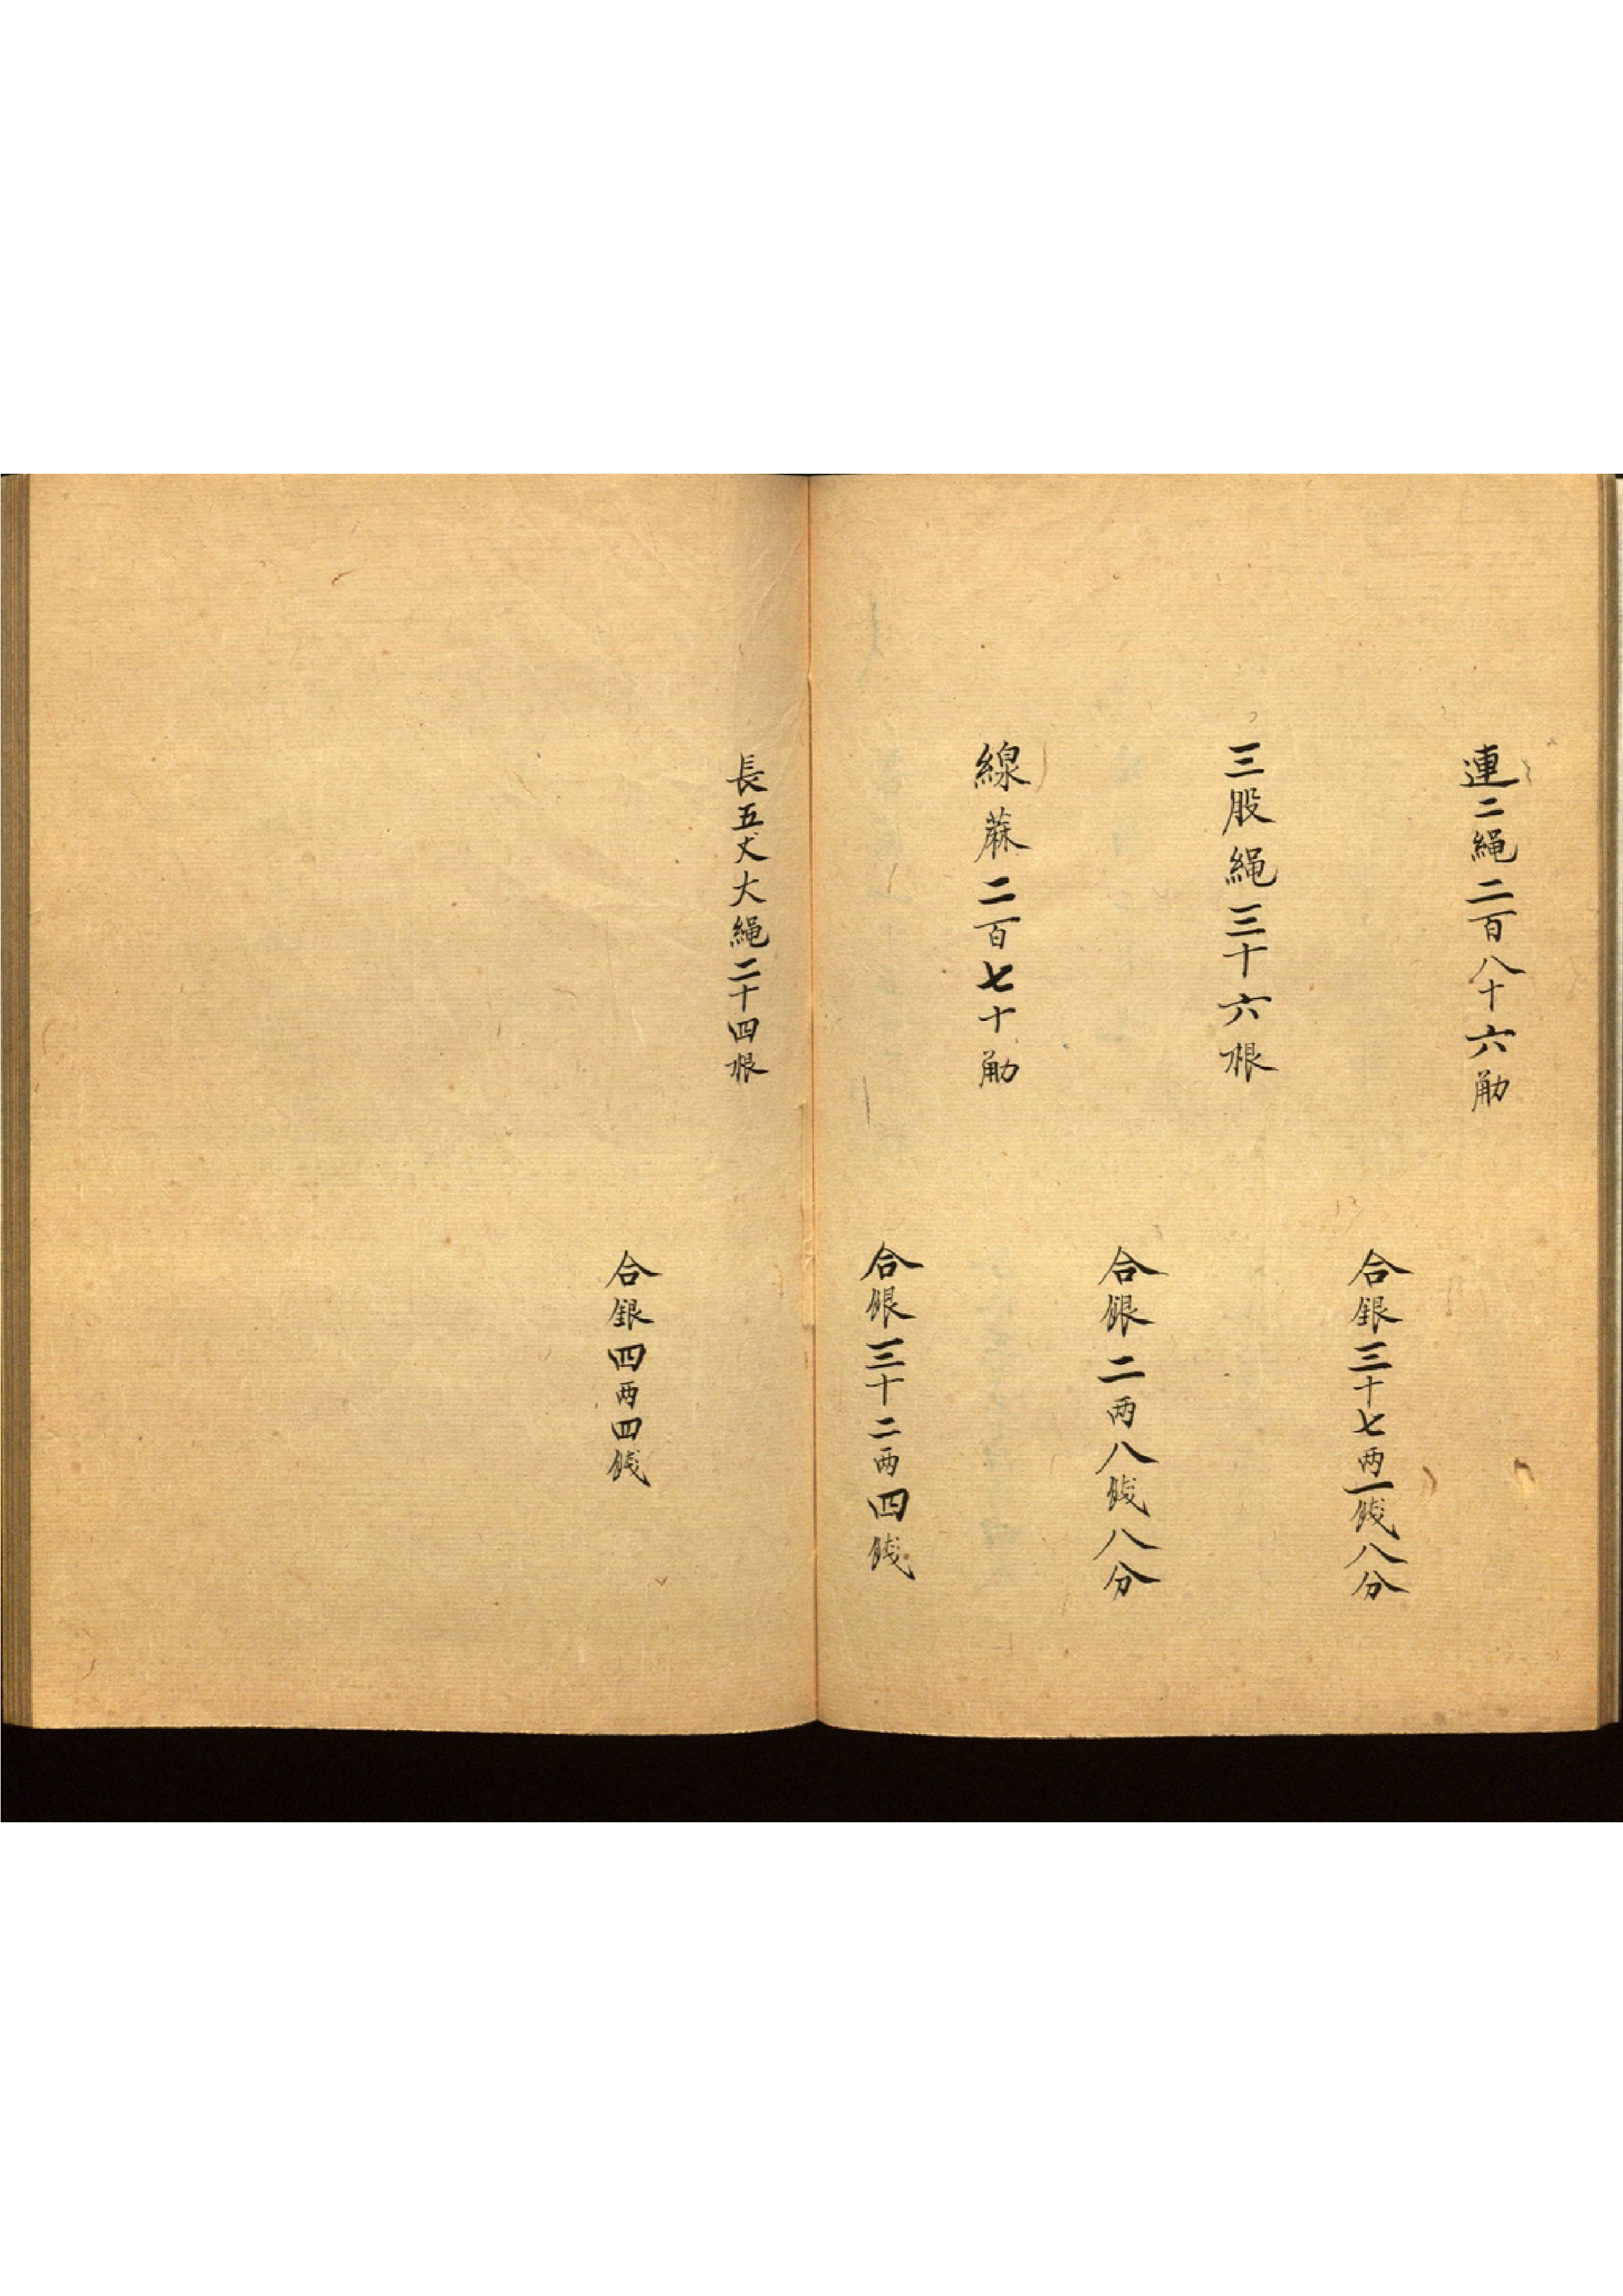 連二繩二百八十六觔
合銀三十七两一錢八分
三股繩三十六根
合銀二两八錢八分
線蔴二百七十觔
合銀三十二两四錢
長五丈大繩二十四根
合銀四两四錢